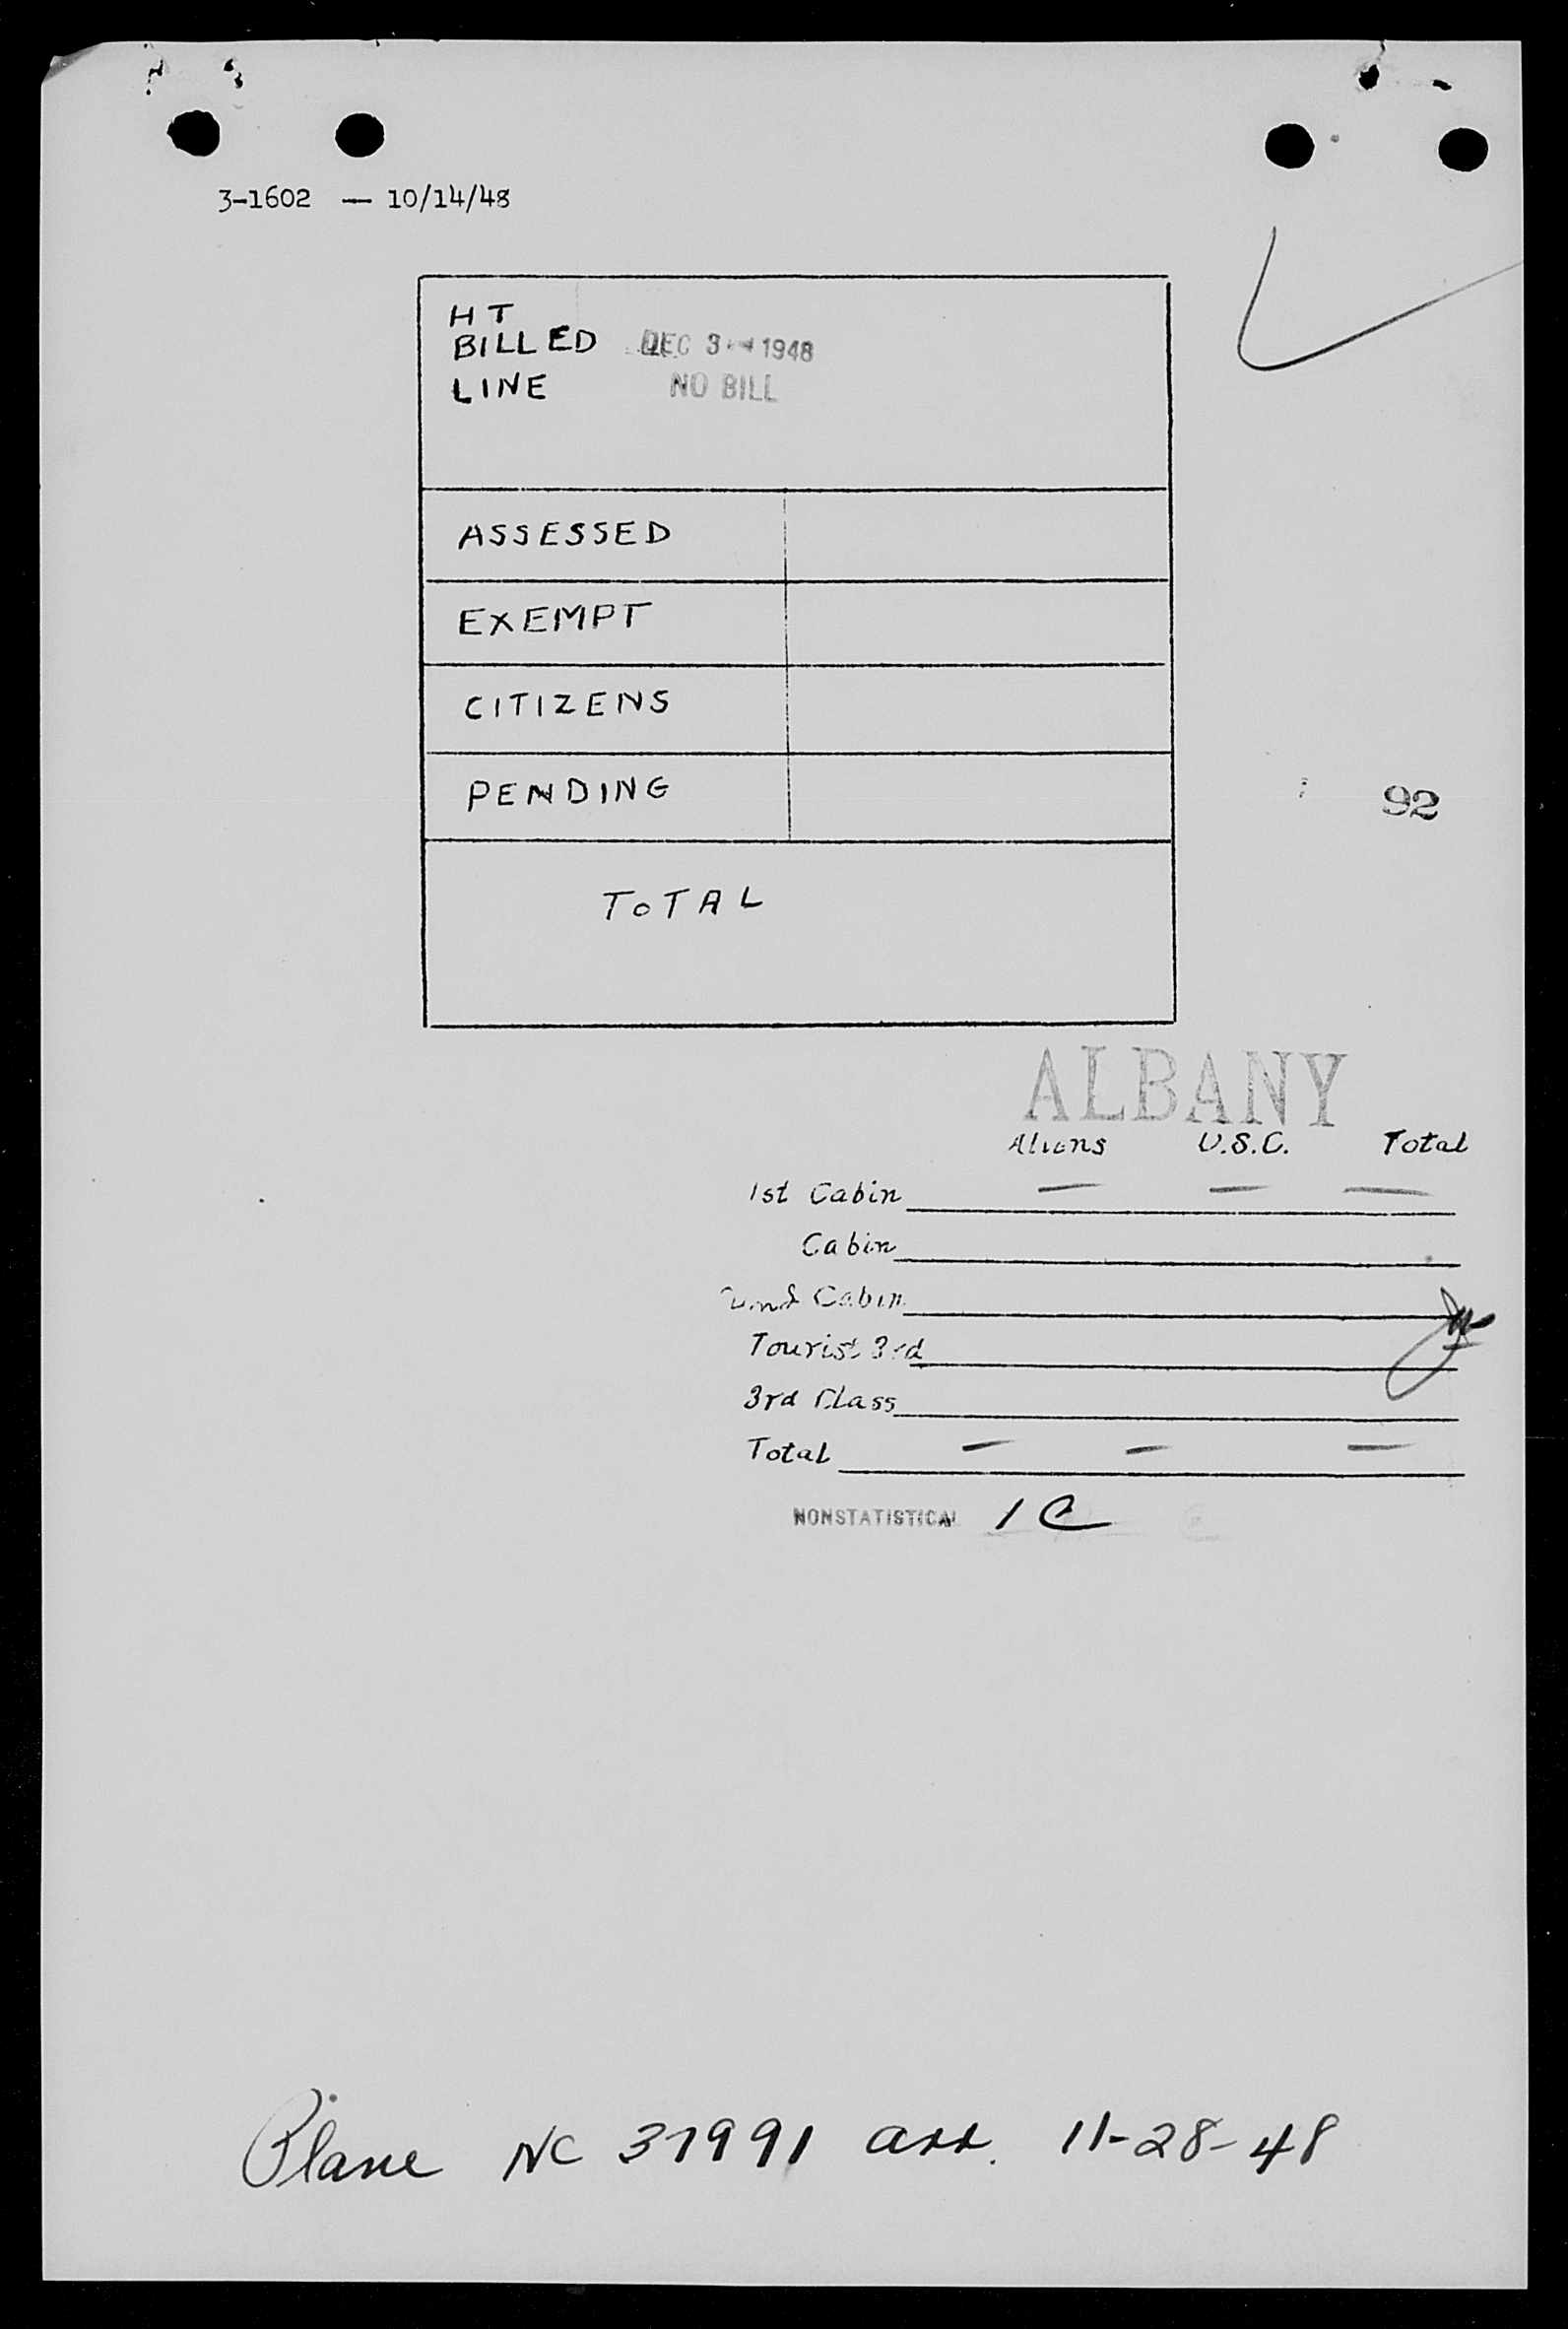 3-1602 — 10/14/48
HT
BILLED DEC 3 1948
LINE NO BILL
ASSESSED
EXEMPT
CITIZENS
PENDING
92
TOTAL
ALBANY
Aliens U.S.C. Total
1st Cabin — — —
Cabin
Cabin
Tourist 3rd
3rd Class
Total — — —
NONSTATISTICAL 1 C
Plane NC 37991 arr. 11-28-48